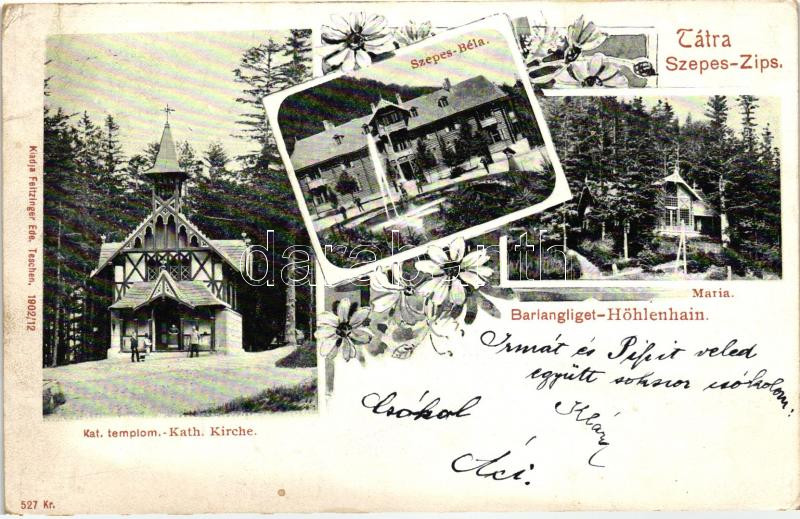 Tátra
Szepes-Zips.
Szepes-Béla.
Maria.
Barlangliget-Höhlenhain.
Kat. templom.-Kath. Kirche.
Kiadja Feitzinger Ede, Teschen. 1902/12
527 Kr.
darabanth
Irmát és Pipit veled
együtt sokszor csókolom:
Klári
Csókol
Áci.